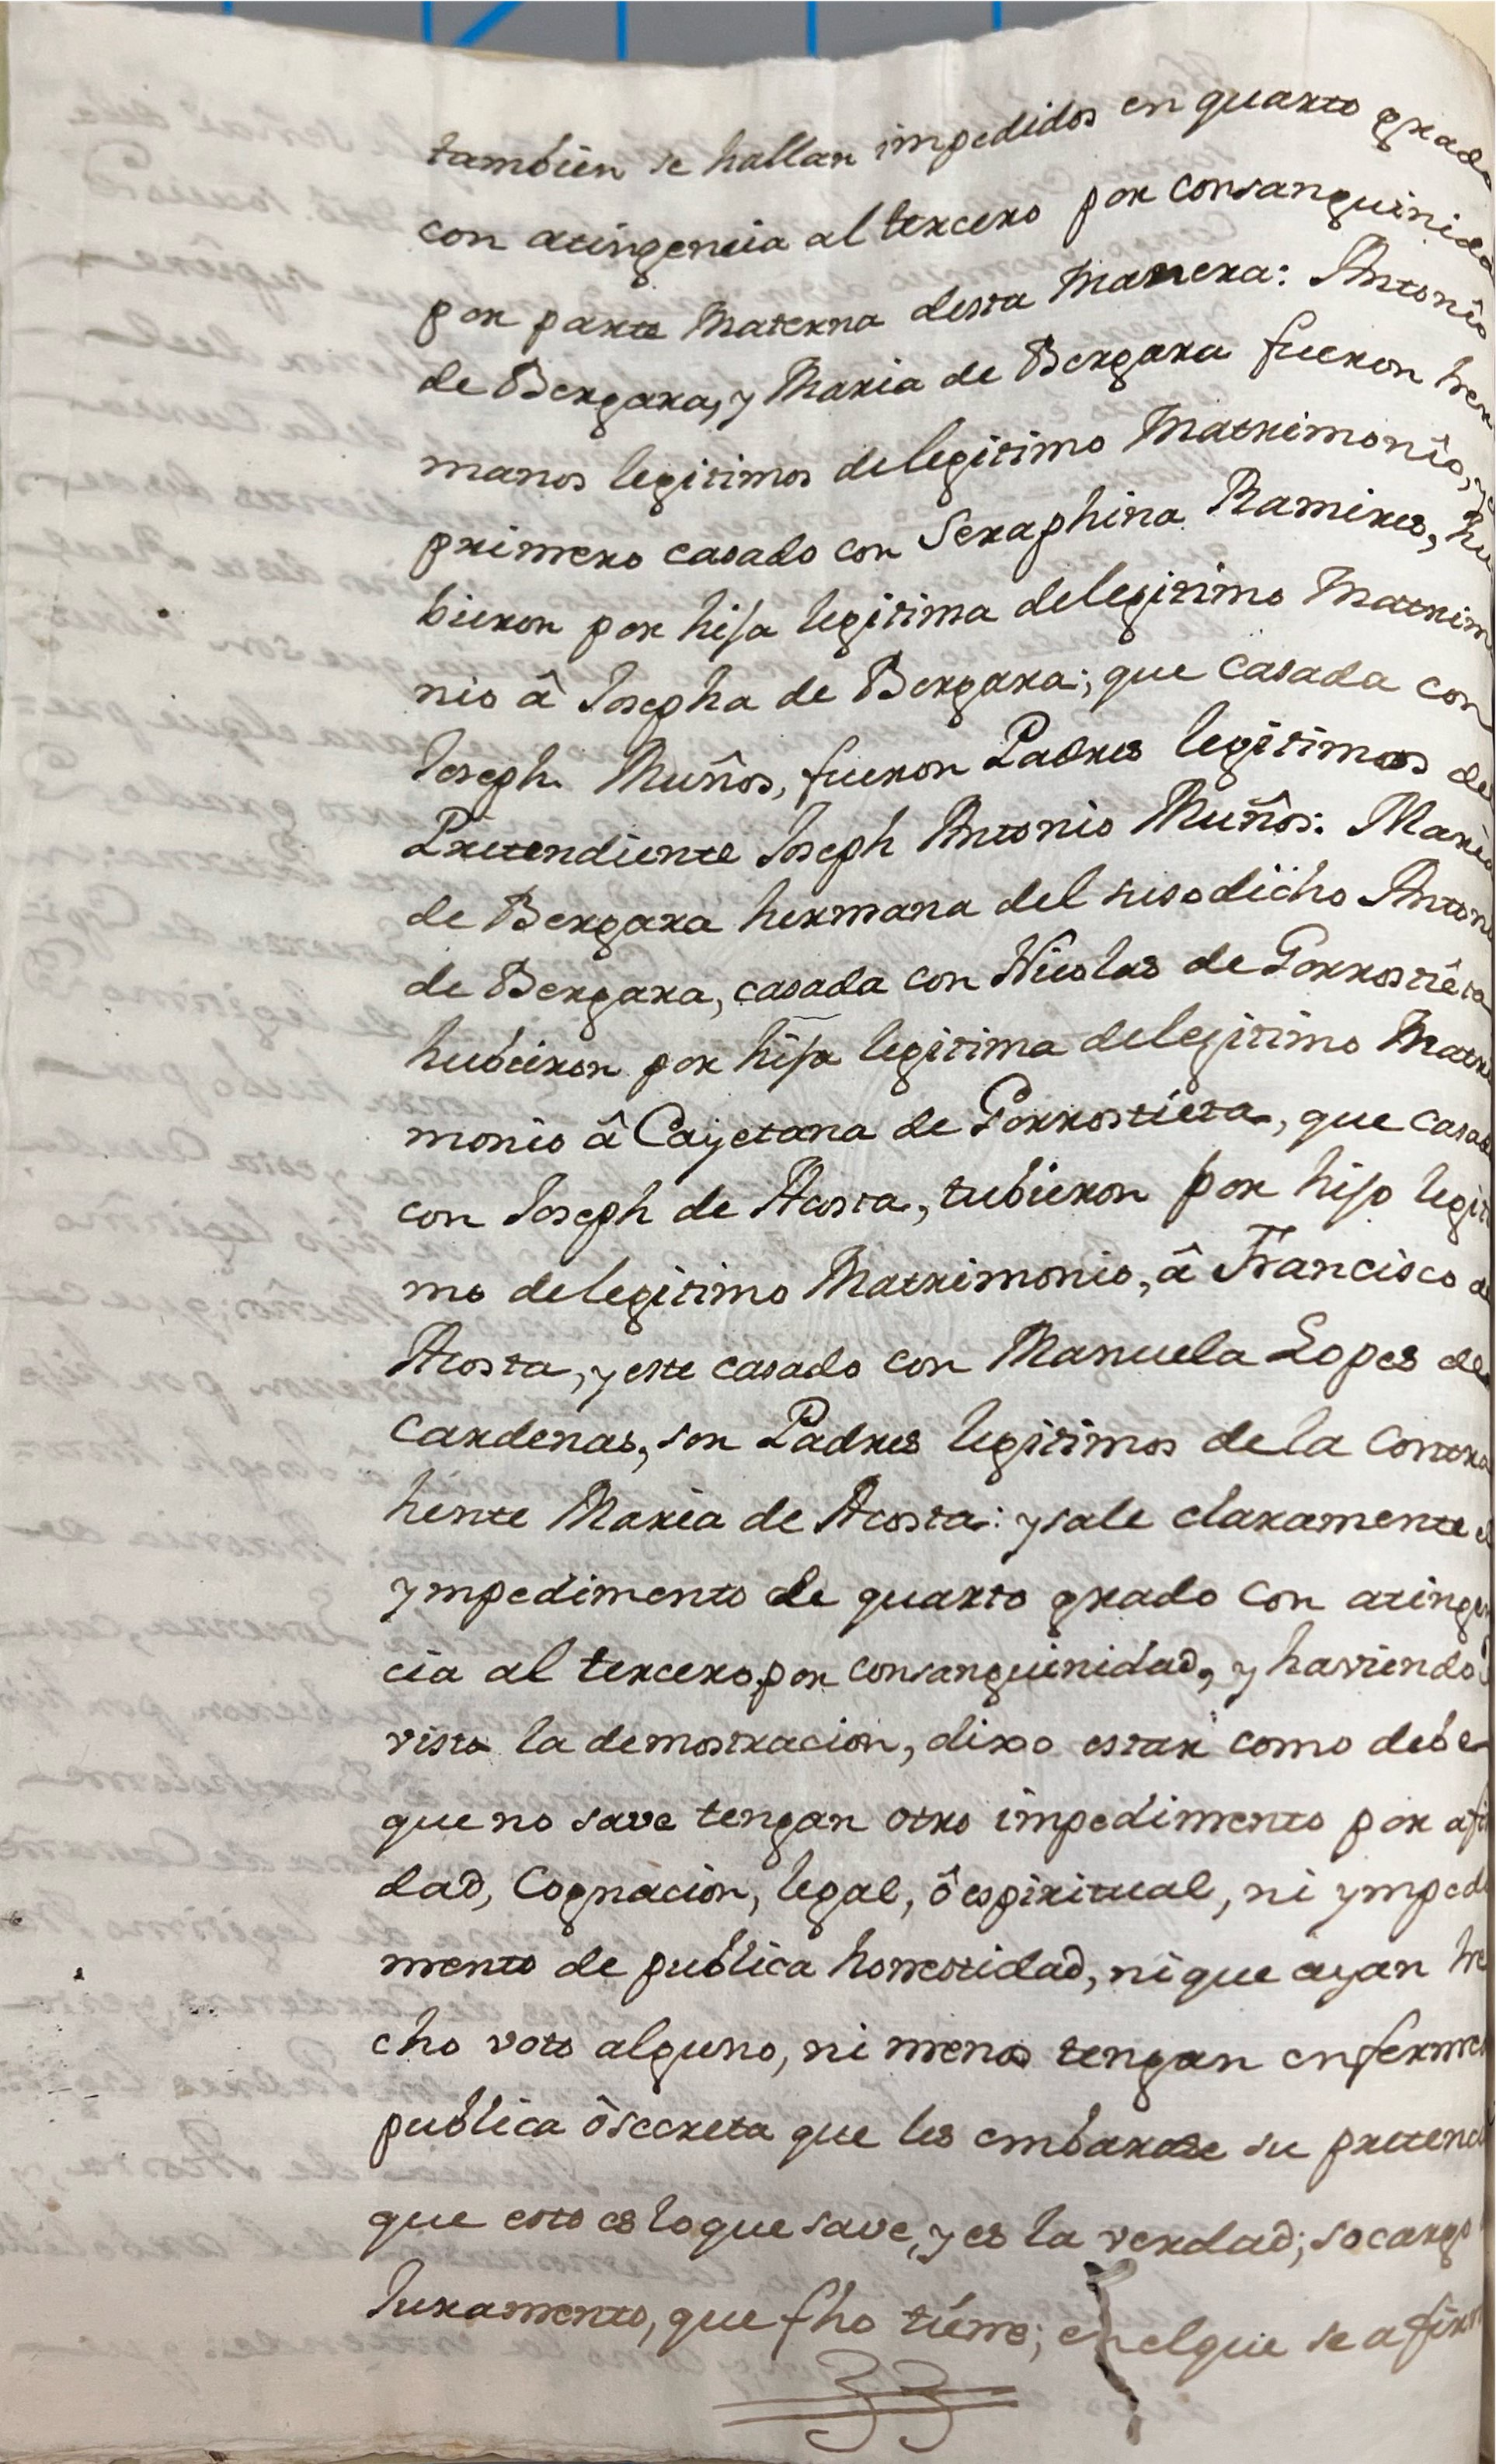 tambien se hallan impedidos en quarto grado
con atingencia al tercero por consanguinida
por parte Materna desta Manera: Antonio
de Bergara, y Maria de Bergara fueron her
manos legitimos de legitimo Matrimonio, y
primero casado con Seraphina Ramires, hu
bieron por hija legitima de legitimo Matrim
nio â Josepha de Bergara; que casada con
Joseph Muños, fueron Padres legitimos de
Pretendiente Joseph Antonio Muños: Maria
de Bergara hermana del susodicho Antoni
de Bergara, casada con Nicolas de Gorrostieta
hubieron por hija legitima de legitimo Matri
monio â Cayetana de Gorrostieta, que casad
con Joseph de Acosta, tubieron por hijo legiti
mo de legitimo Matrimonio, â Francisco de
Acosta, y este casado con Manuela Lopes de
Cardenas, son Padres legitimos de la Contra
hente Maria de Acosta: y sale claramente el
ympedimento de quarto grado con atingen
cia al tercero por consanguinidad, y haviendo
vista la demostracion, dixo estar como debe
que no save tengan otro impedimento por afi
dad, Cognacion, legal, ô espiritual, ni ympedi
mento de publica honestidad, ni que ayan he
cho voto alguno, ni menos tengan enferme
publica ô secreta que les embarase su pretenc
que esto es lo que save, y es la verdad; socargo
Juramento, que fho tiene; en el que se afirm